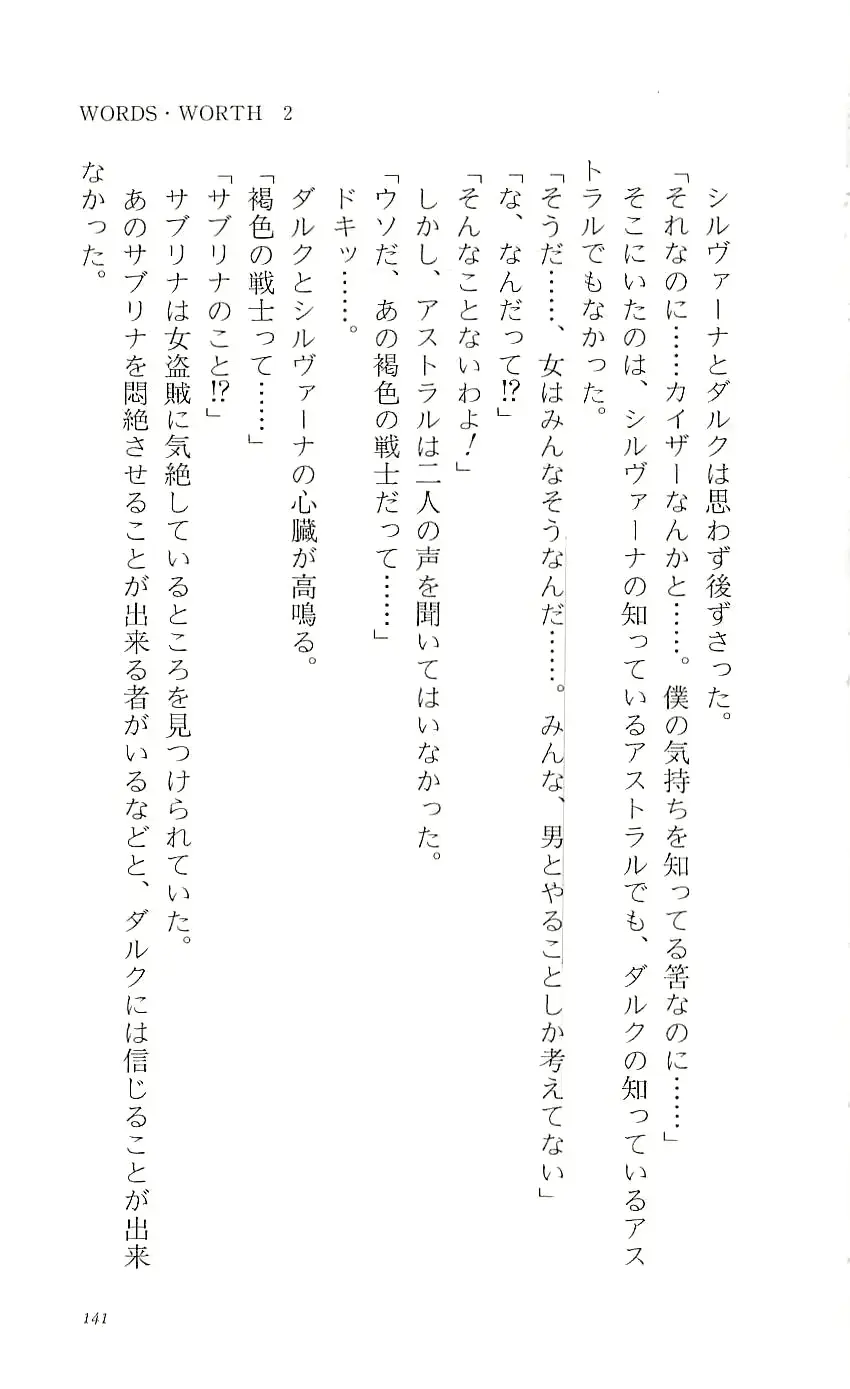 WORDS・WORTH 2
シルヴァーナとダルクは思わず後ずさった。
「それなのに……カイザーなんかと……。僕の気持ちを知ってる筈なのに……」
そこにいたのは、シルヴァーナの知っているアストラルでも、ダルクの知っているアス
トラルでもなかった。
「そうだ……、女はみんなそうなんだ……。みんな、男とやることしか考えてない」
「な、なんだって!?」
「そんなことないわよ！」
しかし、アストラルは二人の声を聞いてはいなかった。
「ウソだ、あの褐色の戦士だって……」
ドキッ……。
ダルクとシルヴァーナの心臓が高鳴る。
「褐色の戦士って……」
「サブリナのこと!?」
サブリナは女盗賊に気絶しているところを見つけられていた。
あのサブリナを悶絶させることが出来る者がいるなどと、ダルクには信じることが出来
なかった。
141